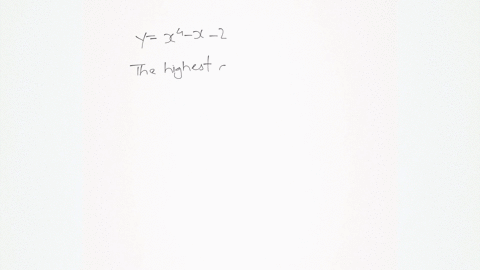 y = x⁴ - x - 2
The highest